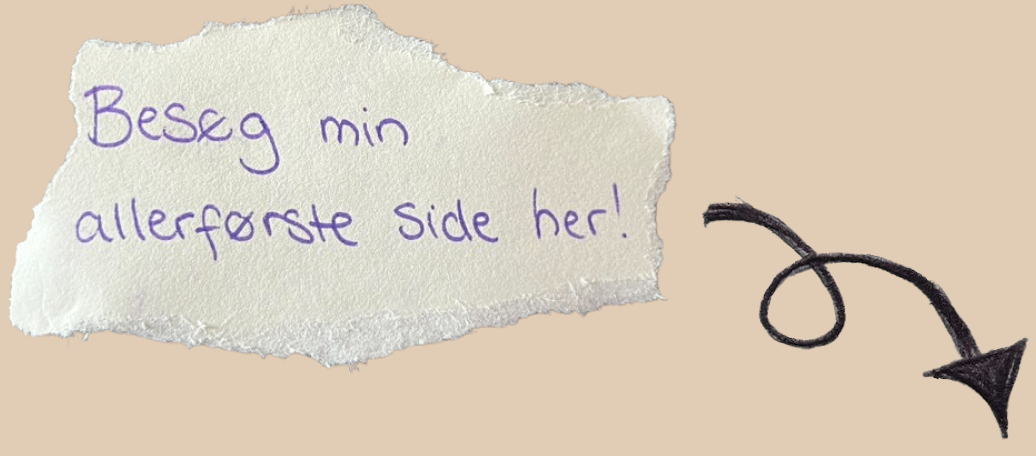 Besøg min
allerførste side her!